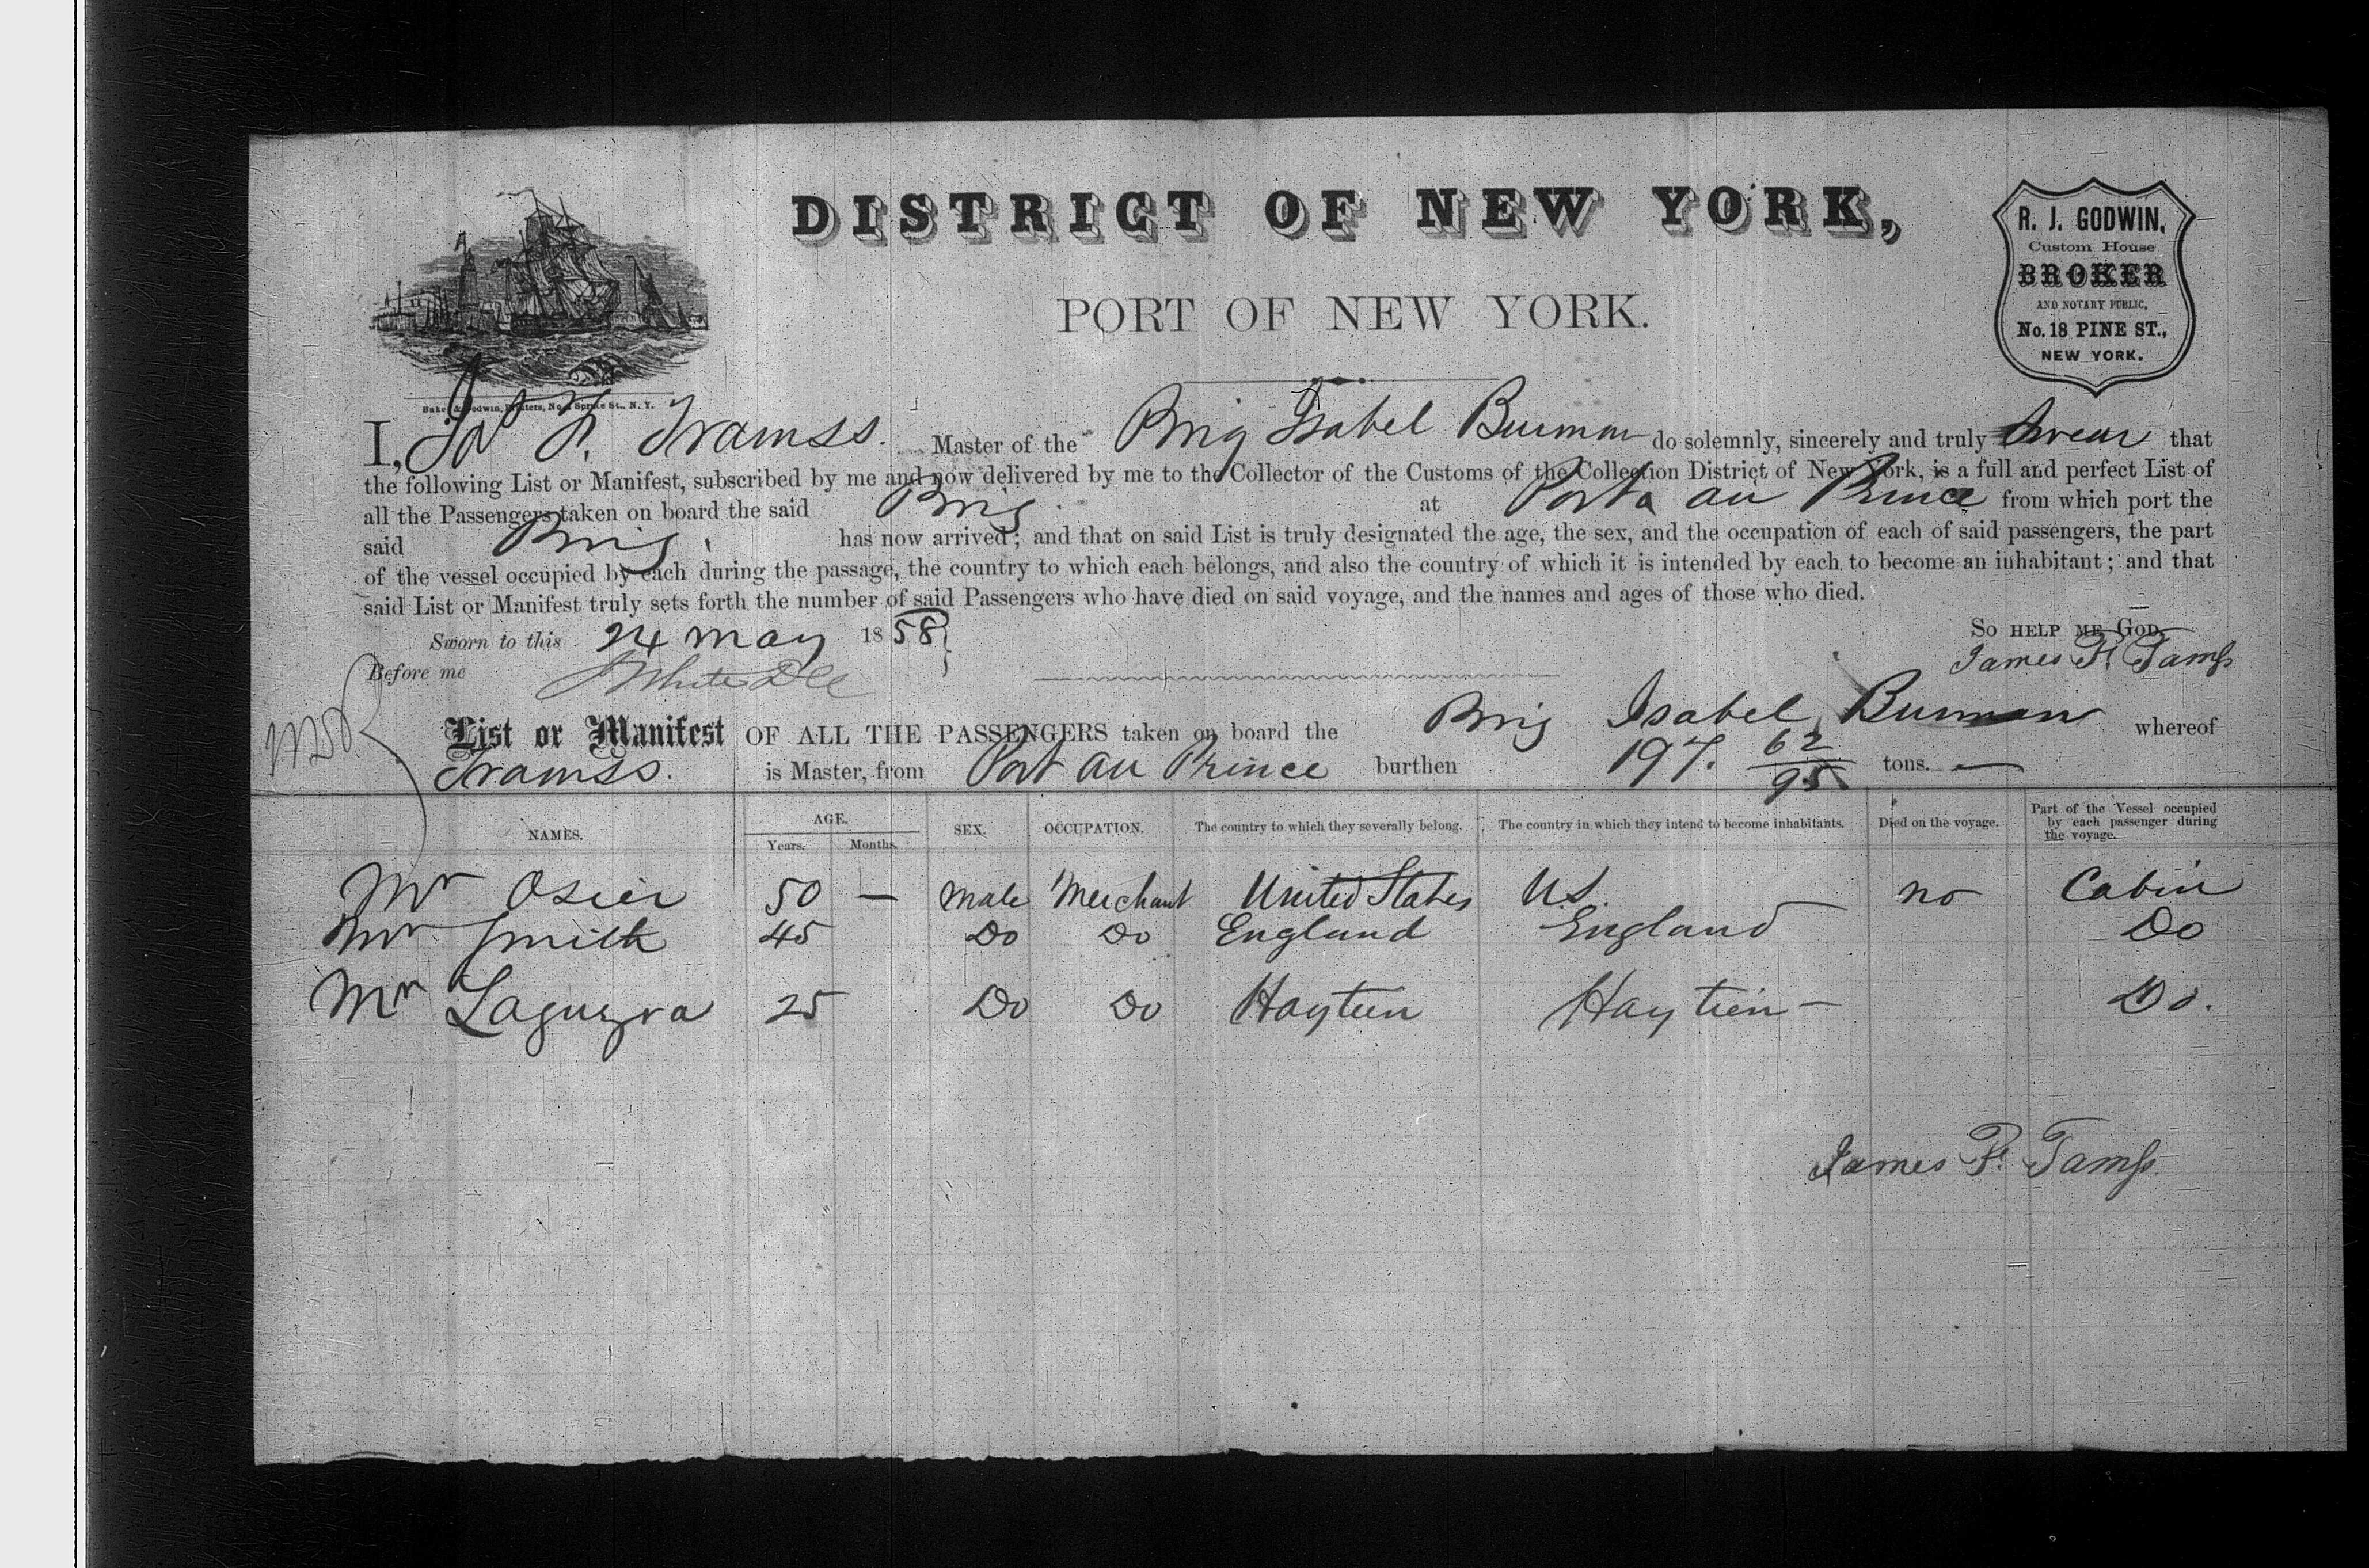 DISTRICT OF NEW YORK,
PORT OF NEW YORK.
R. J. GODWIN,
Custom House
BROKER
AND NOTARY PUBLIC,
No. 18 PINE ST.,
NEW YORK.
Baker & Godwin, Printers, No. 1 Spruce St., N. Y.
I, Jas F. Tramss. Master of the Brig Isabel Burman do solemnly, sincerely and truly Swear that
the following List or Manifest, subscribed by me and now delivered by me to the Collector of the Customs of the Collection District of New York, is a full and perfect List of
all the Passengers taken on board the said Brig at Porta au Prince from which port the
said Brig. has now arrived; and that on said List is truly designated the age, the sex, and the occupation of each of said passengers, the part
of the vessel occupied by each during the passage, the country to which each belongs, and also the country of which it is intended by each to become an inhabitant; and that
said List or Manifest truly sets forth the number of said Passengers who have died on said voyage, and the names and ages of those who died.
Sworn to this 24 May 1858 So help me God
Before me James F. Tamss
List or Manifest OF ALL THE PASSENGERS taken on board the Brig Isabel Burman whereof
Tramss. is Master, from Port au Prince burthen 197. 62/95 tons. —
NAMES. AGE. Years. Months. SEX. OCCUPATION. The country to which they severally belong. The country in which they intend to become inhabitants. Died on the voyage. Part of the Vessel occupied by each passenger during the voyage.
Mr Osier 50 — Male Merchant United States U.S. no Cabin
Mr Smith 45 Do Do England England Do
Mr 25 Do Do Haytien Haytien — Do.
James F. Tamss